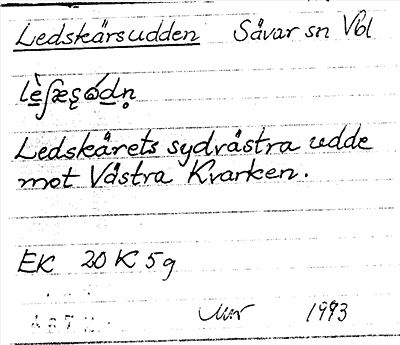 Ledskärsudden Sävar sn Vbl
lè̱ʃæʂώd̲n̥
Ledskärets sydvästra udde
mot Västra Kvarken.
EK 20 K 5g
1993